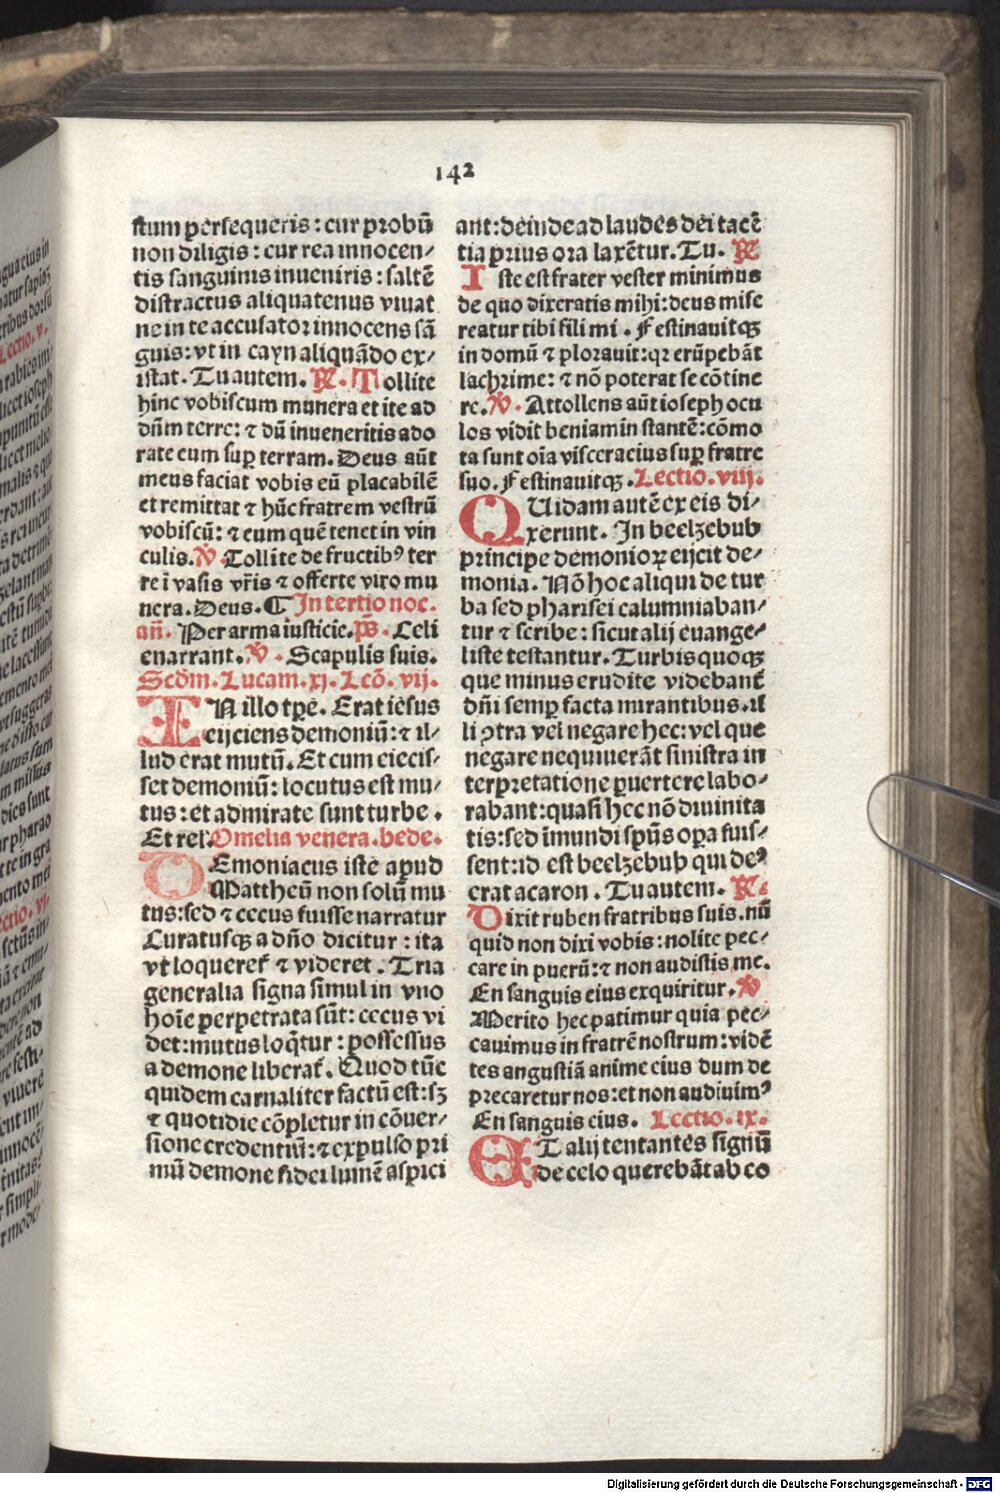 142
stum persequeris : cur probū
non diligis : cur rea innocen⸗
tis sanguinis inueniris : saltē
distractus aliquatenus viuat
ne in te accusator innocens sā
guis: vt in cayn aliquādo ex⸗
istat. Tu autem. ℟. Tollite
hinc vobiscum munera et ite ad
dn̄m terre: ⁊ dū inueneritis ado
rate eum suꝑ terram. Deus aūt
meus faciat vobis eū placabilē
et remittat ⁊ hūc fratrem vestrū
vobiscū: ⁊ eum quē tenet in vin
culis. ℣. Tollite de fructibꝰ ter
re ī vasis vr̄is ⁊ offerte viro mu
nera. Deus. ¶ In tertio noc.
an̄. Per arma iusticie. ps̄. Celi
enarrant. ℣. Scapulis suis.
Scd̄m. Lucam. xj. Lcō. vij.
IN illo tꝑe. Erat iesus
eijciens demoniū: ⁊ il⸗
lud erat mutū. Et cum eiecis⸗
set demoniū: locutus est mu⸗
tus: et admirate sunt turbe.
Et rel. Omelia venera. bede.
DEmoniacus iste apud
Mattheū non solū mu
tus: sed ⁊ cecus fuisse narratur
Curatusqꝫ a dn̄o dicitur : ita
vt loqueret᷑ ⁊ videret. Tria
generalia signa simul in vno
hoīe perpetrata sūt: cecus vi
det: mutus loq̄tur : possessus
a demone liberat᷑. Quod tūc
quidem carnaliter factū est: sꝫ
⁊ quotidie cōpletur in cōuer⸗
sione credentiū: ⁊ expulso pri
mū demone fidei lumē aspici
ant: deinde ad laudes dei tacē
tia prius ora laxētur. Tu. ℟
Iste est frater vester minimus
de quo dixeratis mihi: deus mise
reatur tibi fili mi. Festinauitqꝫ
in domū ⁊ plorauit: qꝛ erūpebāt
lachrime: ⁊ nō poterat se cōtine
re. ℣. Attollens aūt ioseph ocu
los vidit beniamin stantē: cōmo
ta sunt oīa viscera eius suꝑ fratre
suo. Festinauitqꝫ. Lectio. viij.
QUidam autē ex eis di⸗
xerunt. In beelzebub
principe demonioꝝ eijcit de⸗
monia. Nō hoc aliqui de tur
ba sed pharisei calumniaban⸗
tur ⁊ scribe : sicut alij euange⸗
liste testantur. Turbis quoqꝫ
que minus erudite videbant᷑
dn̄i semꝑ facta mirantibus. il
li ꝯtra vel negare hec: vel que
negare nequiuerāt sinistra in
terpretatione ꝑuertere labo⸗
rabant: quasi hec nō diuinita
tis: sed īmundi spūs oꝑa fuis⸗
sent: id est beelzebub qui deꝰ
erat acaron. Tu autem. ℟.
Dixit ruben fratribus suis. nū
quid non dixi vobis: nolite pec⸗
care in puerū: ⁊ non audistis me.
En sanguis eius exquiritur. ℣
Merito hec patimur quia pec⸗
cauimus in fratrē nostrum: vidē
tes angustiā anime eius dum de
precaretur nos: et non audiuimꝰ
En sanguis eius. Lectio. ix.
ET alij tentantes signū
de celo querebāt ab eo
Digitalisierung gefördert durch die Deutsche Forschungsgemeinschaft - DFG